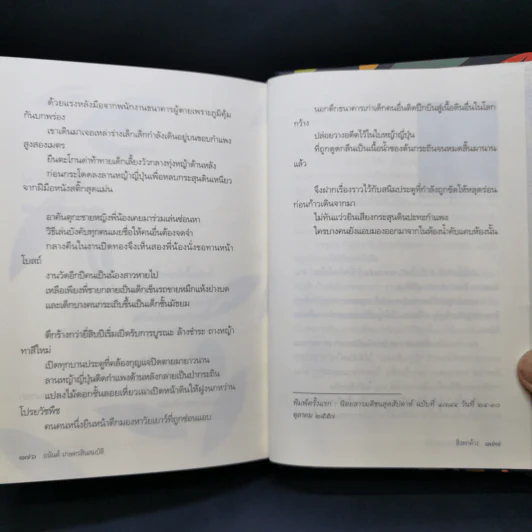 ด้วยแรงหลังมือจากพนักงานธนาคารผู้ตายเพราะภูมิคุ้ม
กันบกพร่อง
เขาเดินมาเจอเหล่าร่างเล็กเล็กกำลังเดินอยู่บนขอบกำแพง
สูงสองเมตร
ยืนตะโกนด่าท้าทายเด็กเลี้ยงวัวกลางทุ่งหญ้าด้านหลัง
ก่อนกระโดดลงลานหญ้าญี่ปุ่นเพื่อหลบกระสุนดินเหนียว
จากฝีมือหนังสติ๊กสุดแม่น
อาคันตุกะชายหญิงพี่น้องเคยมาร่วมเล่นซ่อนหา
วิธีเล่นบังคับทุกคนเผยชื่อให้คนอื่นต้องจดจำ
กลางคืนในงานปิดทองจึงเห็นสองพี่น้องนั่งขอทานหน้า
โบสถ์
งานวัดอีกปีคนเป็นน้องสาวหายไป
เหลือเพียงพี่ชายกลายเป็นเด็กเข็นรถขายหมึกแห้งย่างบด
และเด็กบางคนกระเถิบขึ้นเป็นเด็กชั้นมัธยม
ตึกร้างกว่ายี่สิบปีเริ่มเปิดรับการบูรณะ ล้างชำระ ถางหญ้า
ทาสีใหม่
เปิดทุกบานประตูที่คล้องกุญแจปิดตายมายาวนาน
ลานหญ้าญี่ปุ่นติดกำแพงด้านหลังกลายเป็นป่ากระถิน
แปลงไม้ดอกชั้นลอยเหี่ยวเฉาเปิดหน้าดินให้ฝูงนกหว่าน
โปรยวัชพืช
คนคนหนึ่งยืนหน้าตึกมองหาวัยเยาว์ที่ถูกซ่อนแอบ
๑๗๖ อนันต์ เกษตรสินสมบัติ
นอกตึกธนาคารเก่าเด็กคนอื่นติดปีกบินสู่เนื้อดินอื่นในโลก
กว้าง
ปล่อยวางอดีตไว้ในใบหญ้าญี่ปุ่น
ที่ถูกดูดกลืนเป็นเนื้อน้ำของต้นกระถินจนหมดสิ้นมานาน
แล้ว
จึงฝากเรื่องราวไว้กับสนิมประตูที่กำลังถูกขัดให้หลุดร่อน
ก่อนก้าวเดินจากมา
ไม่ทันแว่วยินเสียงกระสุนดินปะทะกำแพง
ใครบางคนยังแอบมองออกมาจากในห้องน้ำคับแคบห้องนั้น
พิมพ์ครั้งแรก : นิตยสารมติชนสุดสัปดาห์
ตุลาคม ๒๕๕๖
๑๗๗